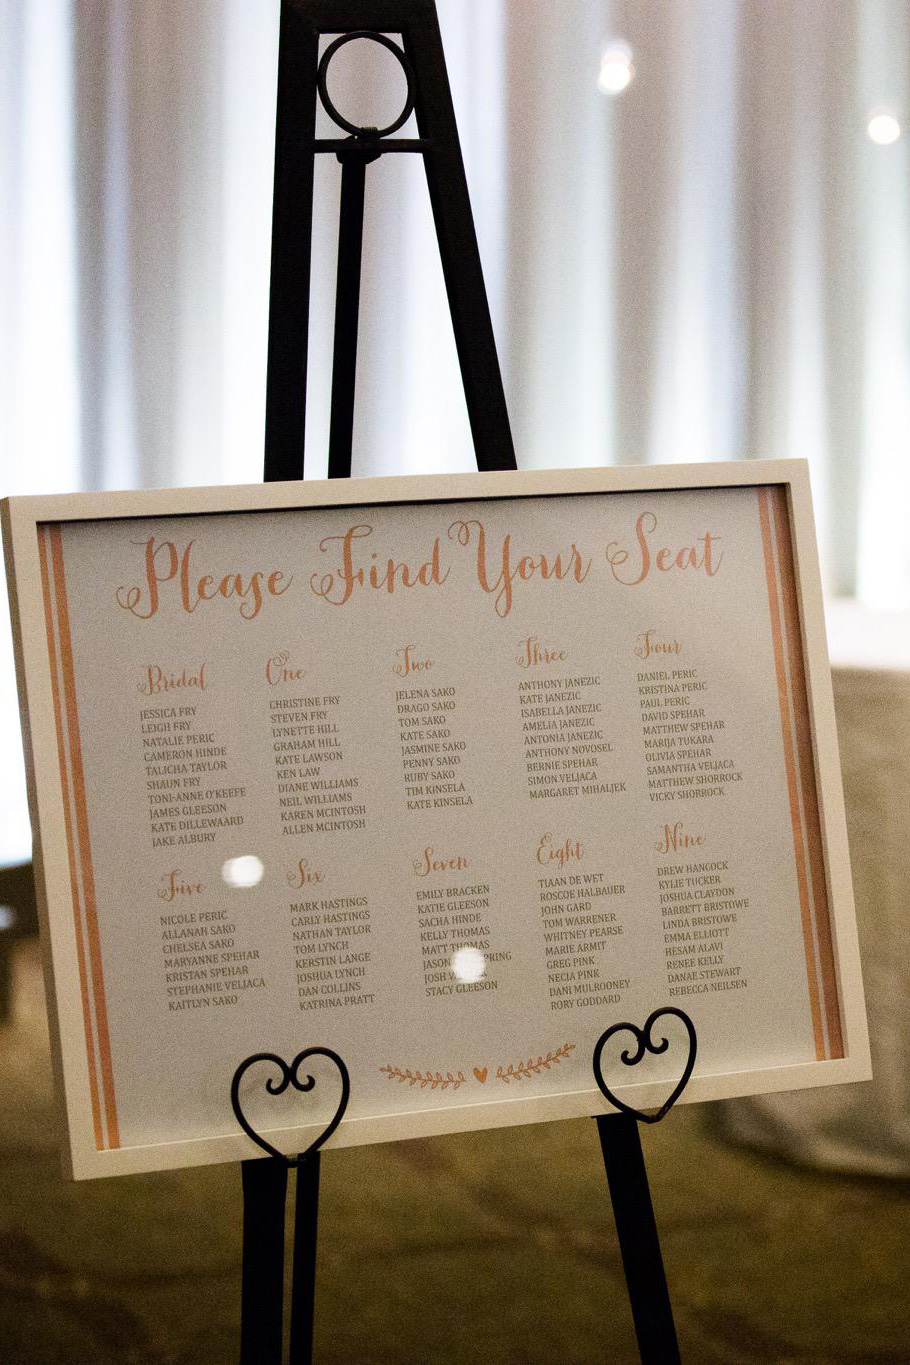 Please Find Your Seat
Bridal
JESSICA FRY
LEIGH FRY
NATALIE PERIC
CAMERON HINDE
TALICHA TAYLOR
SHAUN FRY
TONI-ANNE O'KEEFE
JAMES GLEESON
KATE DILLEWAARD
JAKE ALBURY
One
CHRISTINE FRY
STEVEN FRY
LYNETTE HILL
GRAHAM HILL
KATE LAWSON
KEN LAW
DIANE WILLIAMS
NEIL WILLIAMS
KAREN MCINTOSH
ALLEN MCINTOSH
Two
JELENA SAKO
DRAGO SAKO
TOM SAKO
KATE SAKO
JASMINE SAKO
PENNY SAKO
RUBY SAKO
TIM KINSELA
KATE KINSELA
Three
ANTHONY JANEZIC
KATE JANEZIC
ISABELLA JANEZIC
AMELIA JANEZIC
ANTONIA JANEZIC
ANTHONY NOVOSEL
BERNIE SPEHAR
SIMON VELJACA
MARGARET MIHALJEK
Four
DANIEL PERIC
KRISTINA PERIC
PAUL PERIC
DAVID SPEHAR
MATTHEW SPEHAR
MARIJA TUKARA
OLIVIA SPEHAR
SAMANTHA VELJACA
MATTHEW SHORROCK
VICKY SHORROCK
Five
NICOLE PERIC
ALLANAH SAKO
CHELSEA SAKO
MARYANNE SPEHAR
KRISTAN SPEHAR
STEPHANIE VELJACA
KAITLYN SAKO
Six
MARK HASTINGS
CARLY HASTINGS
NATHAN TAYLOR
TOM LYNCH
KERSTIN LANGE
JOSHUA LYNCH
DAN COLLINS
KATRINA PRATT
Seven
EMILY BRACKEN
KATIE GLEESON
SACHA HINDE
KELLY THOMAS
MATT THOMAS
JASON
JOSH
STACY GLEESON
Eight
TIAAN DE WET
ROSCOE HALBAUER
JOHN GARD
TOM WARRENER
WHITNEY PEARSE
MARIE ARMIT
GREG PINK
NECIA PINK
DANI MULROONEY
RORY GODDARD
Nine
DREW HANCOCK
KYLIE TUCKER
JOSHUA CLAYDON
BARRETT BRISTOWE
LINDA BRISTOWE
EMMA ELLIOTT
HESAM ALAVI
RENEE KELLY
DANAE STEWART
REBECCA NEILSEN